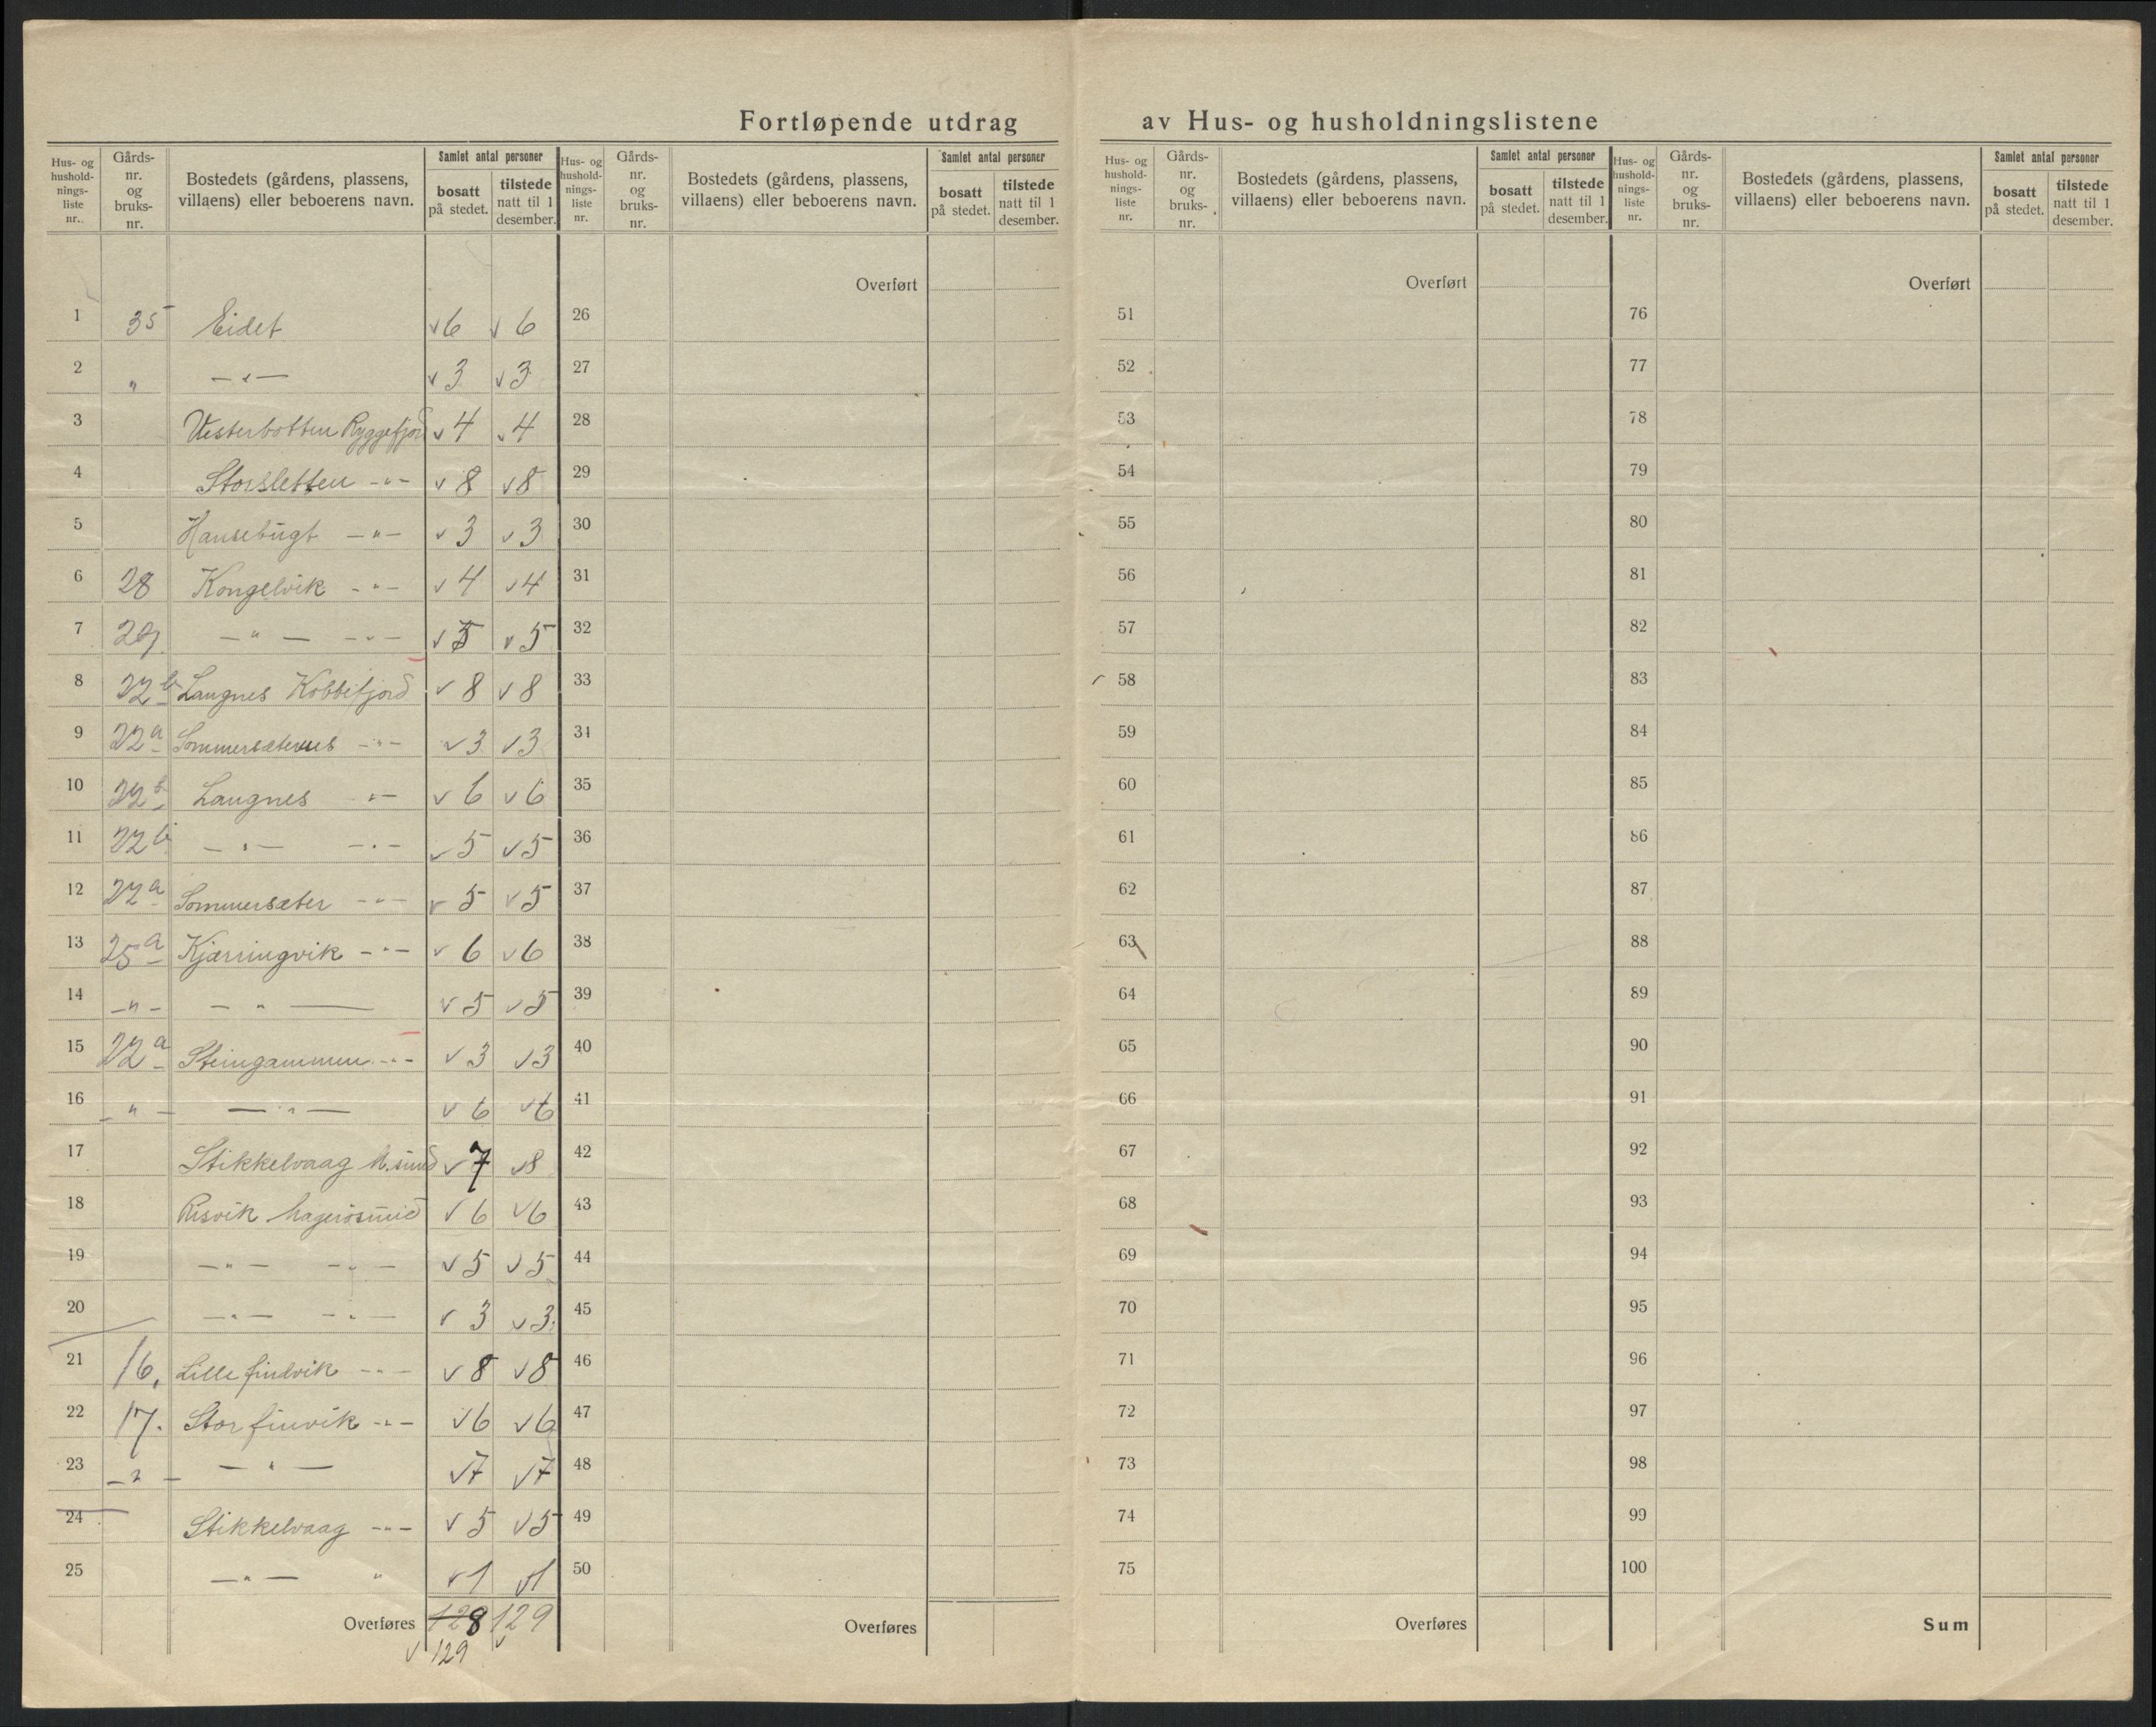 Fortløpende utdrag av Hus- og husholdningslistene
Hus- og hushold-nings-liste nr. Gårds-nr. og bruks-nr. Bostedets (gårdens, plassens, villaens) eller beboerens navn. Samlet antal personer bosatt på stedet. tilstede natt til 1 desember.
Hus- og hushold-nings-liste nr. Gårds-nr. og bruks-nr. Bostedets (gårdens, plassens, villaens) eller beboerens navn. Samlet antal personer bosatt på stedet. tilstede natt til 1 desember.
Hus- og hushold-nings-liste nr. Gårds-nr. og bruks-nr. Bostedets (gårdens, plassens, villaens) eller beboerens navn. Samlet antal personer bosatt på stedet. tilstede natt til 1 desember.
Hus- og hushold-nings-liste nr. Gårds-nr. og bruks-nr. Bostedets (gårdens, plassens, villaens) eller beboerens navn. Samlet antal personer bosatt på stedet. tilstede natt til 1 desember.
Overført Overført Overført
1 35 Eidet √6 √6 26 51 76
2 " —"— √3 √3 27 52 77
3 Vesterbotten Ryggefjord √4 √4 28 53 78
4 Storsletten -"- √8 √8 29 54 79
5 Hansebugt —"— √3 √3 30 55 80
6 28 Kongelvik -"- √4 √4 31 56 81
7 29 —"— -"- √5 √5 32 57 82
8 22b Langnes Kobbefjord √8 √8 33 58 83
9 22a Sommersæternes -"- √3 √3 34 59 84
10 22b Langnes -"- √6 √6 35 60 85
11 22b —"— -"- √5 √5 36 61 86
12 22a Sommersæter -"- √5 √5 37 62 87
13 25a Kjærringvik -"- √6 √6 38 63 88
14 -"- - " — √5 √5 39 64 89
15 22a Steingammen -"- √3 √3 40 65 90
16 -"- —"— √6 √6 41 66 91
17 Stikkelvaag M.sund √7 √8 42 67 92
18 Risvik Magerøsund √6 √6 43 68 93
19 —"— -"- √5 √5 44 69 94
20 —"— -"- √3 √3 45 70 95
21 16. Lille finvik -"- √8 √8 46 71 96
22 17. Stor finvik -"- √6 √6 47 72 97
23 -"- —"— √7 √7 48 73 98
24 Stikkelvaag -"- √5 √5 49 74 99
25 —"— " √1 √1 50 75 100
Overføres 128 129 Overføres Overføres Sum
√ 129 √